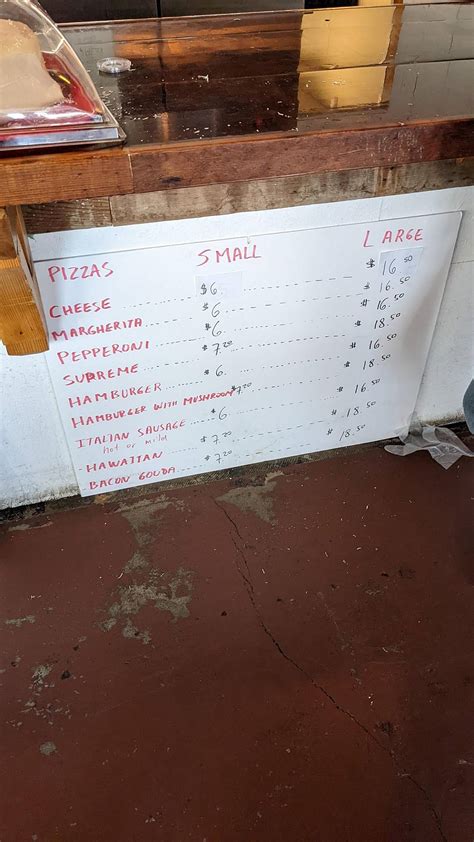 PIZZAS SMALL LARGE
CHEESE $6. $16.50
MARGHERITA $6 $16.50
PEPPERONI $6 $16.50
SUPREME $7.20 $18.50
HAMBURGER $6. $16.50
HAMBURGER WITH MUSHROOM $7.20 $18.50
ITALIAN SAUSAGE $6 $16.50
hot or mild
HAWAIIAN $7.20 $18.50
BACON GOUDA $7.20 $18.50